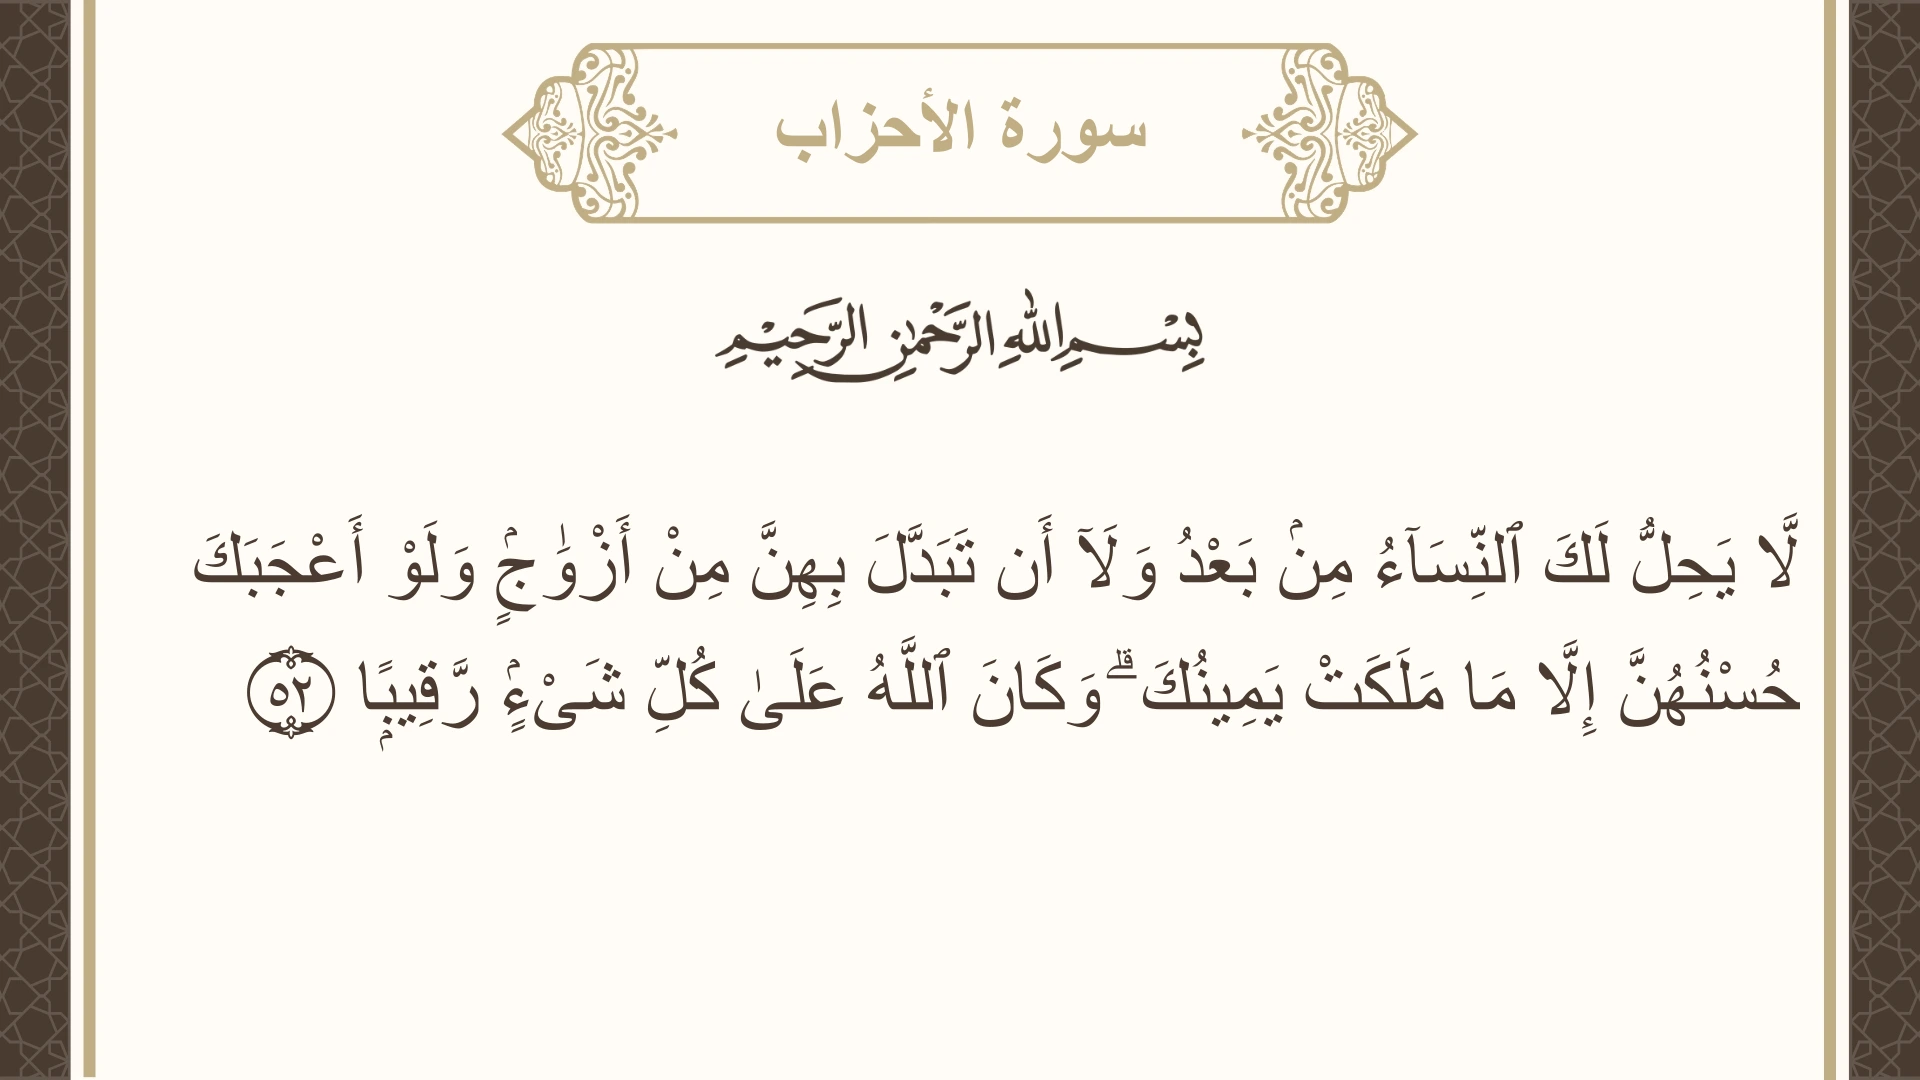 سورة الأحزاب
بِسْمِ اللهِ الرَّحْمٰنِ الرَّحِيْمِ
لَّا يَحِلُّ لَكَ ٱلنِّسَآءُ مِنۢ بَعْدُ وَلَآ أَن تَبَدَّلَ بِهِنَّ مِنْ أَزْوَٰجٍۢ وَلَوْ أَعْجَبَكَ
حُسْنُهُنَّ إِلَّا مَا مَلَكَتْ يَمِينُكَ ۗ وَكَانَ ٱللَّهُ عَلَىٰ كُلِّ شَىْءٍۢ رَّقِيبًۭا ٥٢